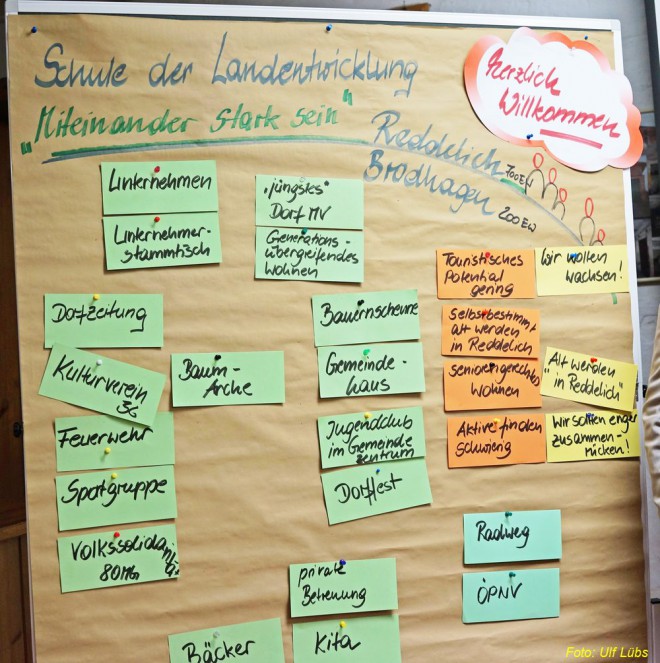 Schule der Landentwicklung
"Miteinander stark sein"
Herzlich
Willkommen
Reddelich 700 EW
Brodhagen 200 EW
Unternehmen
Unternehmer-
stammtisch
"jüngstes"
Dorf MV
Generations-
übergreifendes
Wohnen
Dorfzeitung
Kulturverein
Feuerwehr
Sportgruppe
Volkssolida
80 Mtg
Baum-
Arche
Bauernscheune
Gemeinde-
haus
Jugendclub
im Gemeinde
zentrum
Dorffest
Touristisches
Potential
gering
Selbstbestimmt
alt werden
in Reddelich
seniorengerechtes
Wohnen
Aktive finden
schwierig
Wir wollen
wachsen!
"Alt werden
in Reddelich"
Wir sollten enger
zusammen-
rücken!
Radweg
ÖPNV
private
Betreuung
Kita
Bäcker
Foto: Ulf Lübs